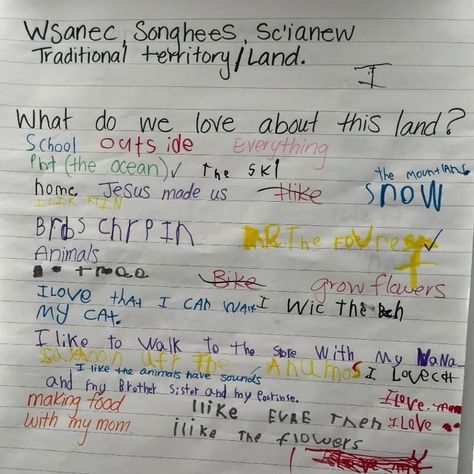 Wsanec, Songhees, Sc'ianew
Traditional territory/Land.
I
What do we love about this land?
School outside Everything
Pht (the ocean) the SKI
the mountians
home Jesus made us Hike snow
I LIK
Brbs chrpin The
Animals
Bike grow flowers
I LOVE thAt I CAD WAlk I WIC the
My CAT.
I like to walk to the store with my NaNa
The Anumos I Love
I like the animals have sounds
and my Brother Sister and my
making food I love
with my mom. I like EVRE I love
i like The flowers